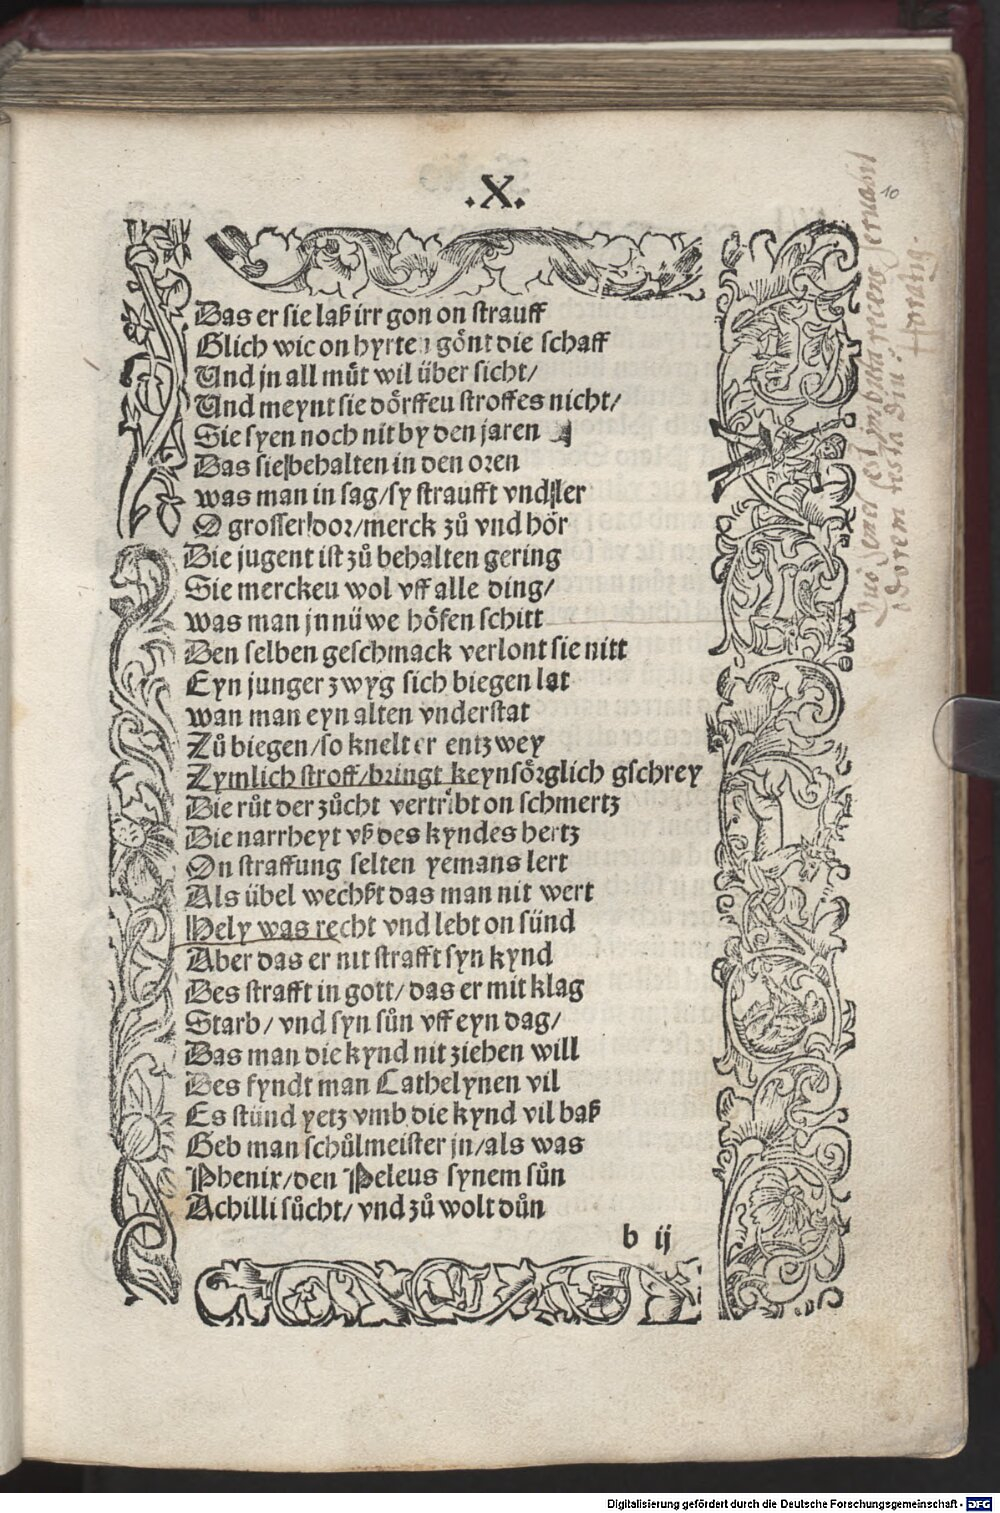 .X.
10
Das er sie laß irr gon on strauff
Glich wie on hyrten gönt die schaff
Und jn all můt wil über sicht/
Und meynt sie dörffeu stroffes nicht/
Sie syen noch nit by den jaren
Das sie behalten in den oren
was man in sag/sy straufft vnd ler
O grosser dor/merck zů vnd hör
Die jugent ist zů behalten gering
Sie merckeu wol vff alle ding/
was man jn nüwe höfen schitt
Den selben geschmack verlont sie nitt
Eyn junger zwyg sich biegen lat
wan man eyn alten vnderstat
Zů biegen/so knelt er entzwey
Zymlich stroff/bringt keyn sörglich gschrey
Die růt der zůcht vertribt on schmertz
Die narrheyt vß des kyndes hertz
On straffung selten yemans lert
Als übel wechßt das man nit wert
Hely was recht vnd lebt on sünd
Aber das er nit strafft syn kynd
Des strafft in gott/das er mit klag
Starb/vnd syn sůn vff eyn dag/
Das man die kynd nit ziehen will
Des fyndt man Cathelynen vil
Es stünd yetz vmb die kynd vil baß
Geb man schůlmeister jn/als was
Phenix/den Peleus synem sůn
Achilli sůcht/vnd zů wolt důn
b ij
Quo semel est imbuta recens servabit
odorem testa diu
Digitalisierung gefördert durch die Deutsche Forschungsgemeinschaft - DFG